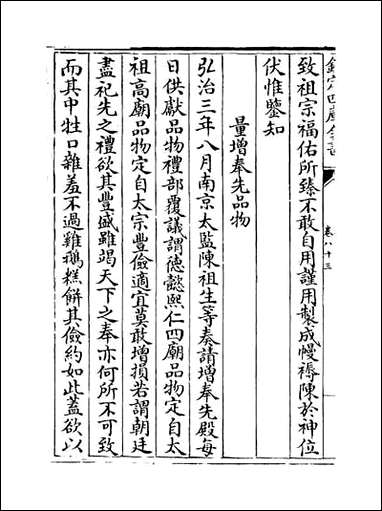 欽定四庫全書
卷八十三
致祖宗福佑所臻不敢自用謹用製成幔褥陳於神位
伏惟鑒知
量增奉先品物
弘治三年八月南京太監陳祖生等奏請增奉先殿每
日供獻品物禮部覆議謂德懿熙仁四廟品物定自太
祖高廟品物定自太宗豐儉適宜莫敢增損若謂朝廷
盡祀先之禮欲其豐盛雖竭天下之奉亦何所不可致
而其中牲口雜羞不過雞鵝糕餅其儉約如此蓋欲以